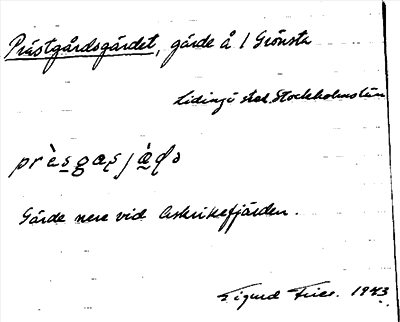 Prästgårdsgärdet, gärde å 1 Grönsta
Lidingö stad, Stockholms län
Gärde nere vid Askrikefjärden.
Sigurd Fries. 1943